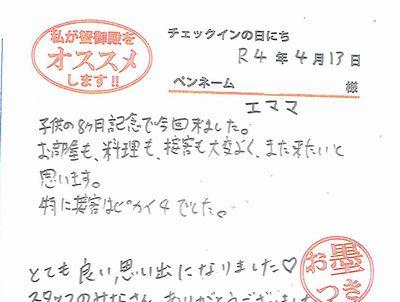 私が蟹御殿を
オススメ
します!!
チェックインの日にち
R4年4月13日
ペンネーム 様
エママ
子供の8ヶ月記念で今回来ました。
お部屋も、料理も、接客も大変よく、また来たいと
思います。
特に接客はピカイチでした。
とても良い思い出になりました♡
スタッフのみなさん、ありがとうございました
お墨
つき